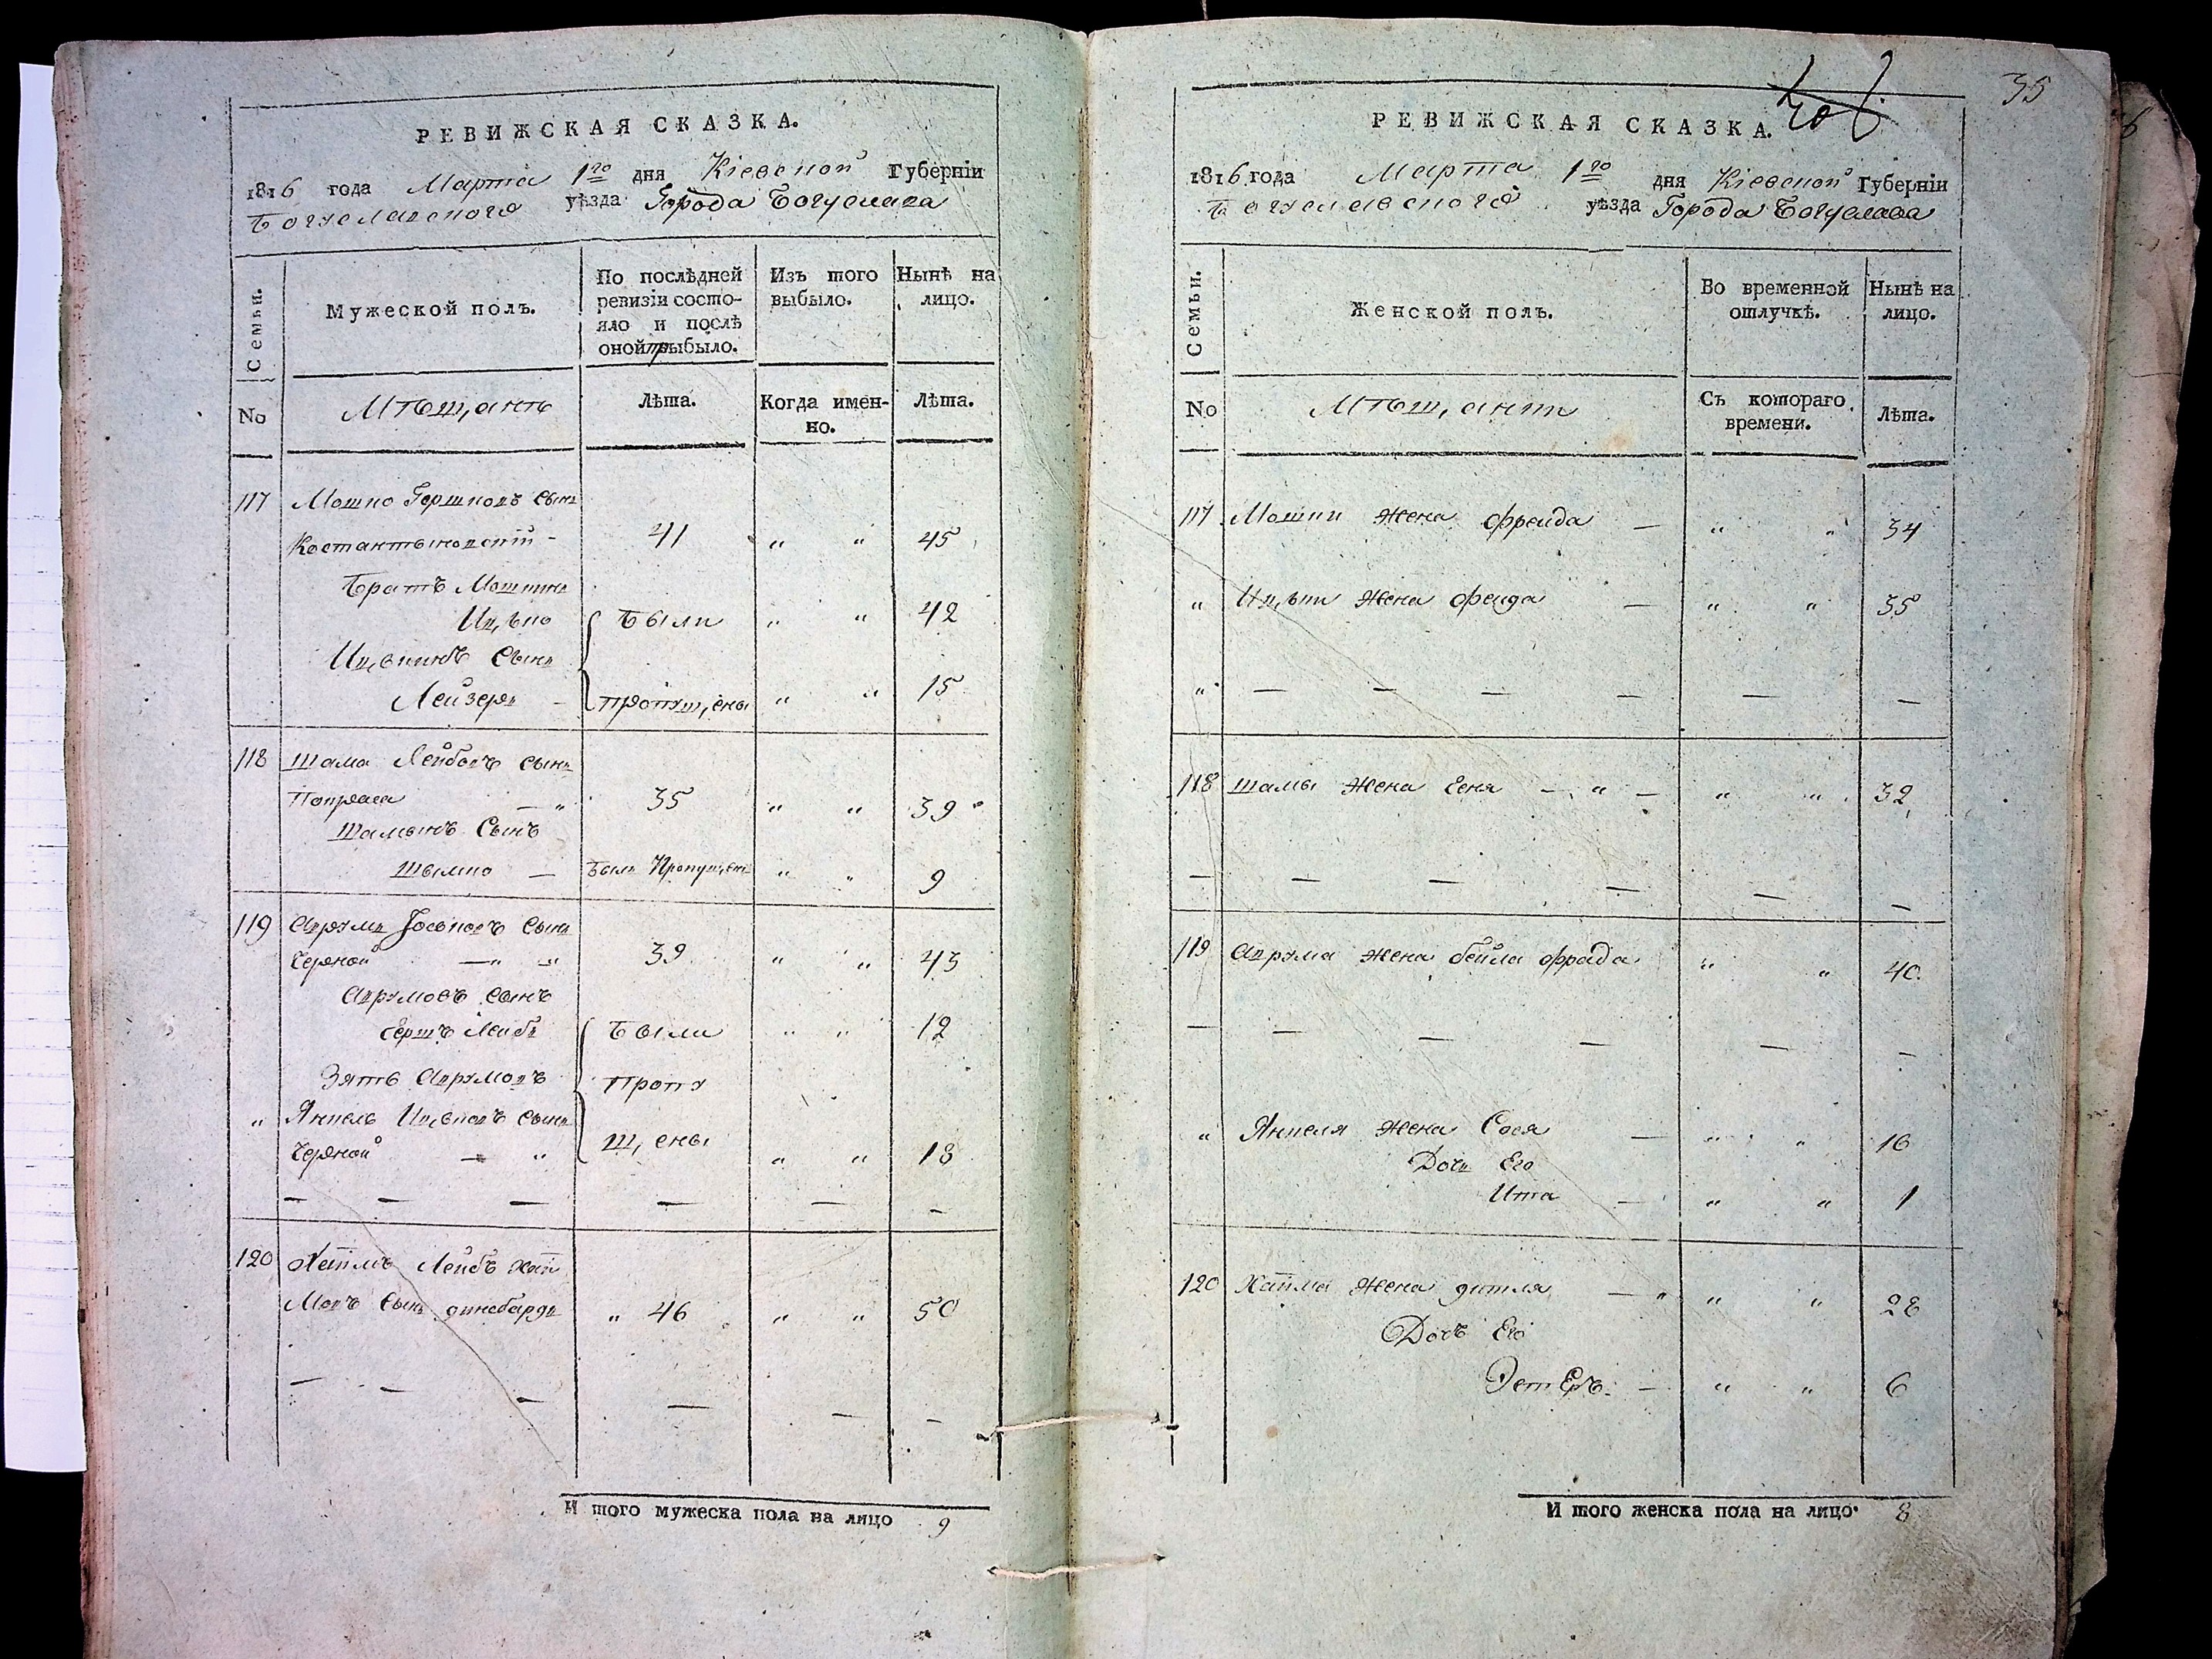 РЕВИЖСКАЯ СКАЗКА.
1816 года Марта 1го дня Кіевской Губерніи
Богуславского уѣзда Города Богуслава
Семьи.
Мужеской полъ.
По послѣдней ревизіи состо-
яло и послѣ
оной прибыло.
Изъ того
выбыло.
Нынѣ на
лицо.
No
Мѣщанъ
Лѣта.
Когда имен-
но.
Лѣта.
117 Мошко Гершковъ сынъ
Костантыновскій - 41 " " 45
Братъ Мошкинъ
Ицько Были " " 42
Ицькинъ Сынъ
Лейзеръ - пропущены " " 15
118 Шама Лейбовъ сынъ
35 " " 39
Шаминъ Сынъ
Шлымко — Былъ Пропущенъ " " 9
119 Аврумъ Іоськовъ Сынъ
Черной — " 39 " " 43
Аврумовъ сынъ
Гершъ Лейбъ Были " " 12
Зять Аврумовъ пропу
" Янкель Ицьковъ Сынъ
Черной — " щены " " 18
— — — — — —
120 Хаимъ Лейбъ Хаи
мовъ сынъ " 46 " " 50
— — — — — —
И того мужеска пола на лицо 9
35
РЕВИЖСКАЯ СКАЗКА.
1816 года Марта 1го дня Кіевской Губерніи
Богуславского уѣзда Города Богуслава
Семьи.
Женской полъ.
Во временной
отлучкѣ.
Нынѣ на
лицо.
No
Мѣщанъ
Съ котораго
времени.
Лѣта.
117 Мошки жена Фрейда — " " 34
" Ицьки жена Фейга — " " 35
" — — — — — —
118 Шамы жена Геня — " — " " 32
— — — — — —
119 Аврума жена бейла фрада " " 40
— — — — — —
" Янкеля жена Сося — " " 16
Дочь Его
Ита — " " 1
120 Хаима жена гитля — " " " 28
Дочь Его
Эстеръ — " " 6
И того женска пола на лицо 8